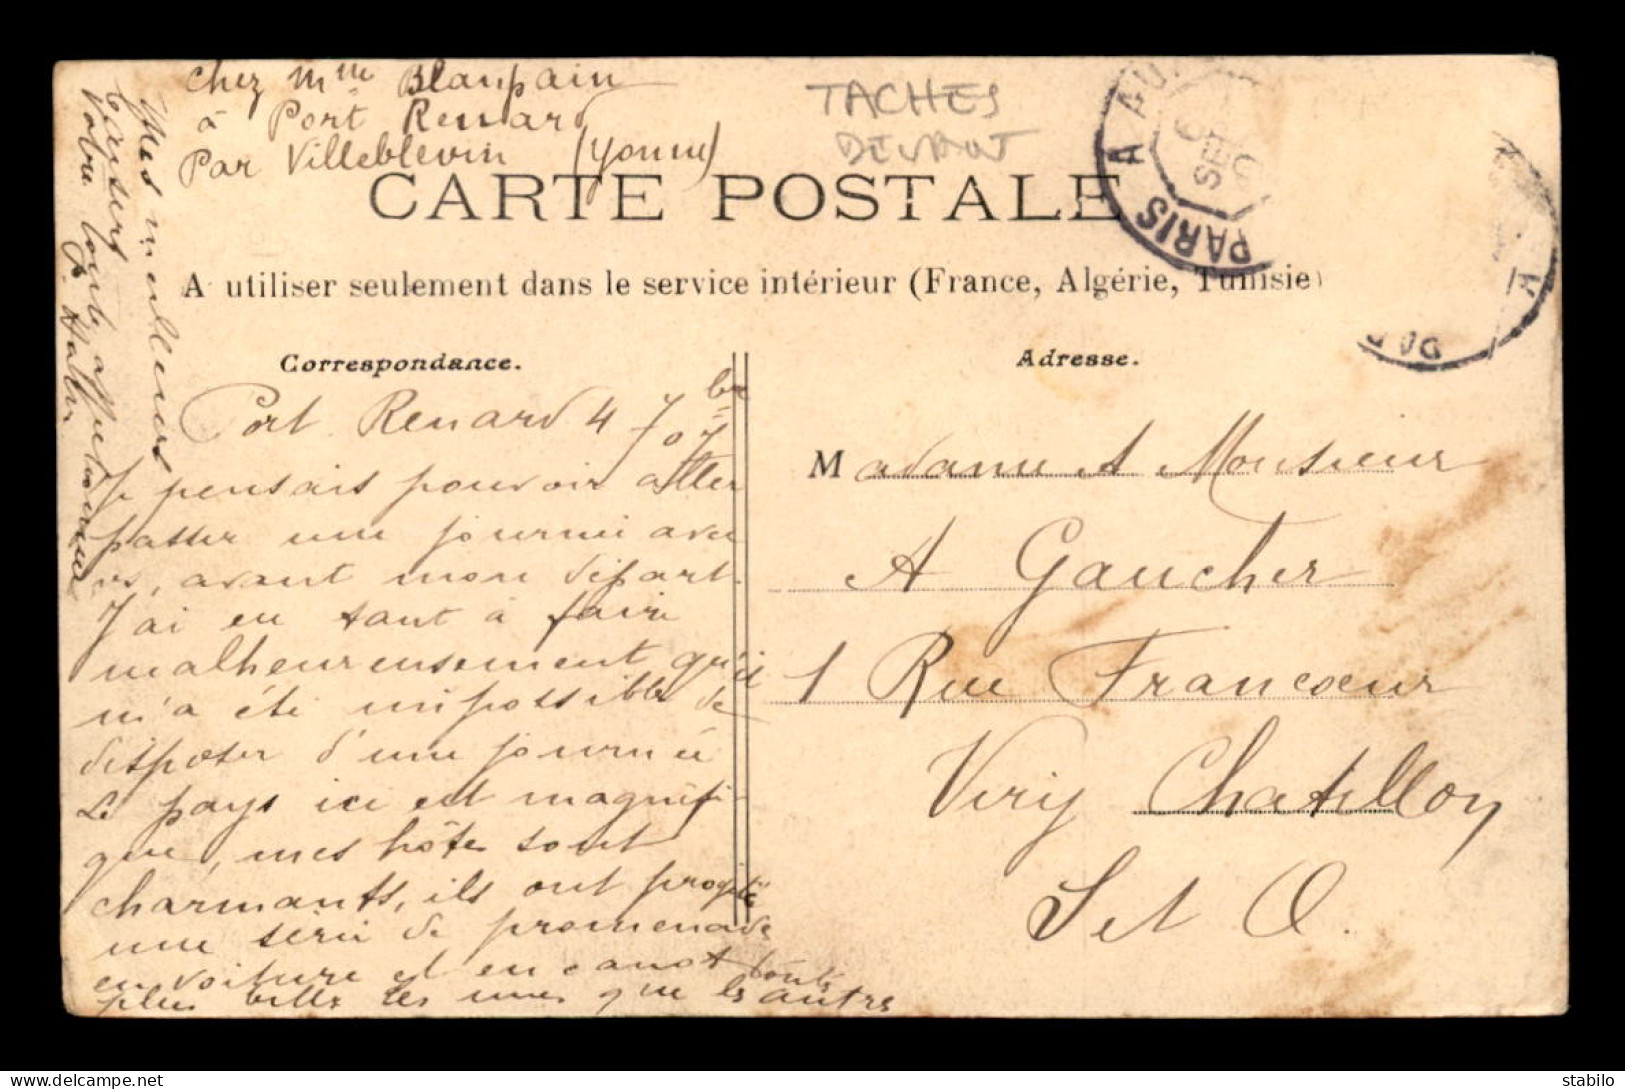 chez Mme Blanpain
à Port Renard
Par Villeblevin (Yonne)
TACHES
DEVANT
CARTE POSTALE
A utiliser seulement dans le service intérieur (France, Algérie, Tunisie)
PARIS A AU
6
SEPT
Correspondance.
Port Renard 4 7bre
07
Je pensais pouvoir aller
passer une journée avec
vs, avant mon départ.
J'ai eu tant à faire
malheureusement qu'il
m'a été impossible de
disposer d'une journée
Le pays ici est magnifi-
que, mes hôtes sont
charmants, ils ont projeté
une série de promenade
en voiture et en canot toutes
plus belles les unes que les autres
Mes meilleurs
baisers
Votre toute affectionnée
Adresse.
Madame et Monsieur
A Gaucher
1 Rue Francœur
Viry Chatillon
S et O.
delcampe.net
stabilo